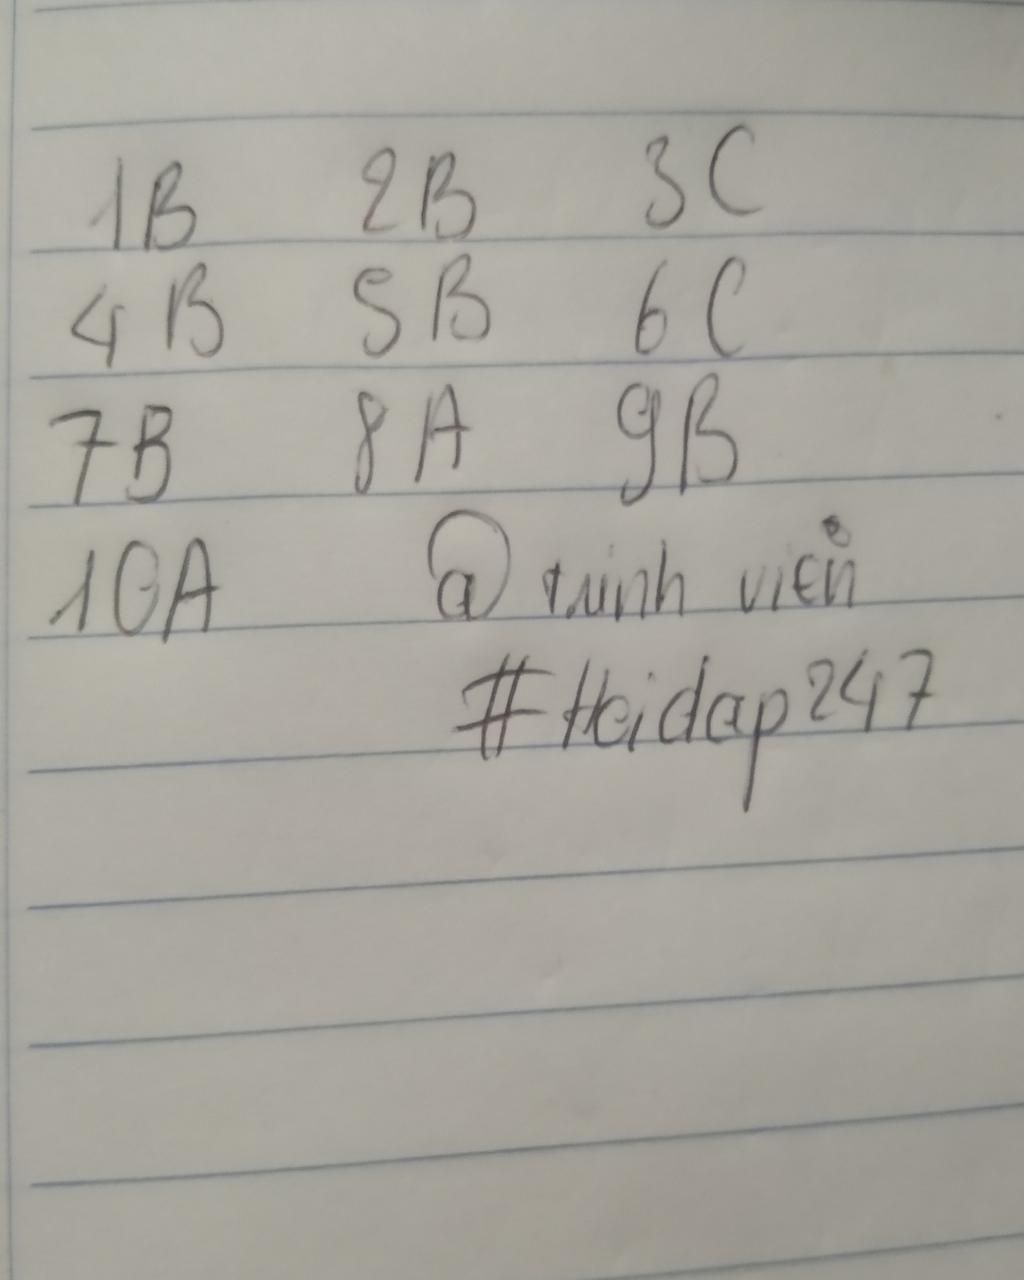 1B 2B 3C
4B 5B 6C
7B 8A 9B
10A @
#Hoidap247